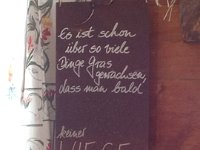 Es ist schon
über so viele
Dinge Gras
gewachsen,
dass man bald
keiner
WIESE